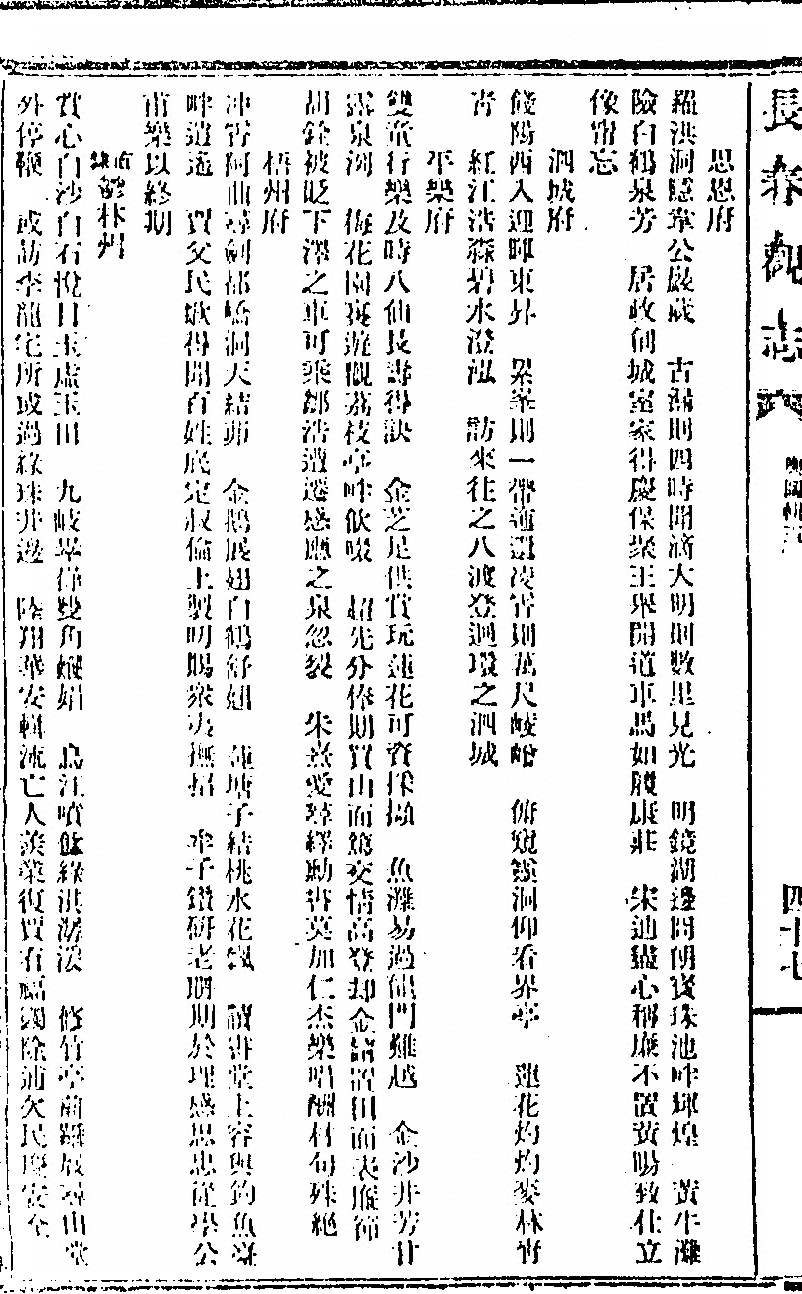 長春觀志 四十七
思恩府
羅洪洞隱韋公嚴歲 古漏則四時開滴大明則數里見光 明鏡湖邊問朗寶珠池畔輝煌 黃牛灘
險白鶴泉芳 居政創城室家得慶保眾王舉開道車馬如履康莊 宋迪盡心稱廉不置黃暘致仕立
像甯忘
泗城府
餞陽西入迎暉東昇 累峯則一帶凌霄則萬尺崚嶒 俯窺洞仰看界亭 蓮花灼灼麥林青
青 紅江浩淼碧水澄泓 訪來往之八渡登迴環之泗城
平樂府
雙童行樂及時八仙長壽得訣 金芝足供賞玩蓮花可資採擷 魚灘易過龍門難越 金沙井芳甘
露泉洌 梅花園遊觀荔枝亭畔飲啜 超先分俸期買山而篤交情高登却金置田而表廉節
胡銓被貶下澤之車可乘鄒浩遭遷感應之泉忽裂 朱熹愛尋繹勤書莫加仁杰樂唱酬材句殊絕
梧州府
冲霄阿曲尋劍都嶠洞天結茆 金鵝展翅白鶴舒翅 蓮塘子結桃水花飄 讀書堂上容與釣魚臺
畔逍遙 賈父民歌得開百姓底定叔倫上製明賜眾夷撫招 率子鑽研老期期於理感思忠從學公
甫樂以終期
直隸鬱林州
賞心白沙白石悅目玉虛玉田 九岐翠雙角嬋娟 烏江噴綠洪濤浪 修竹亭前躡屐尋山堂
外停鞭 或訪李龍宅所或過綠珠井邊 陸翔華安輯流亡人羨業復賈有福蠲除逋欠民慶安全